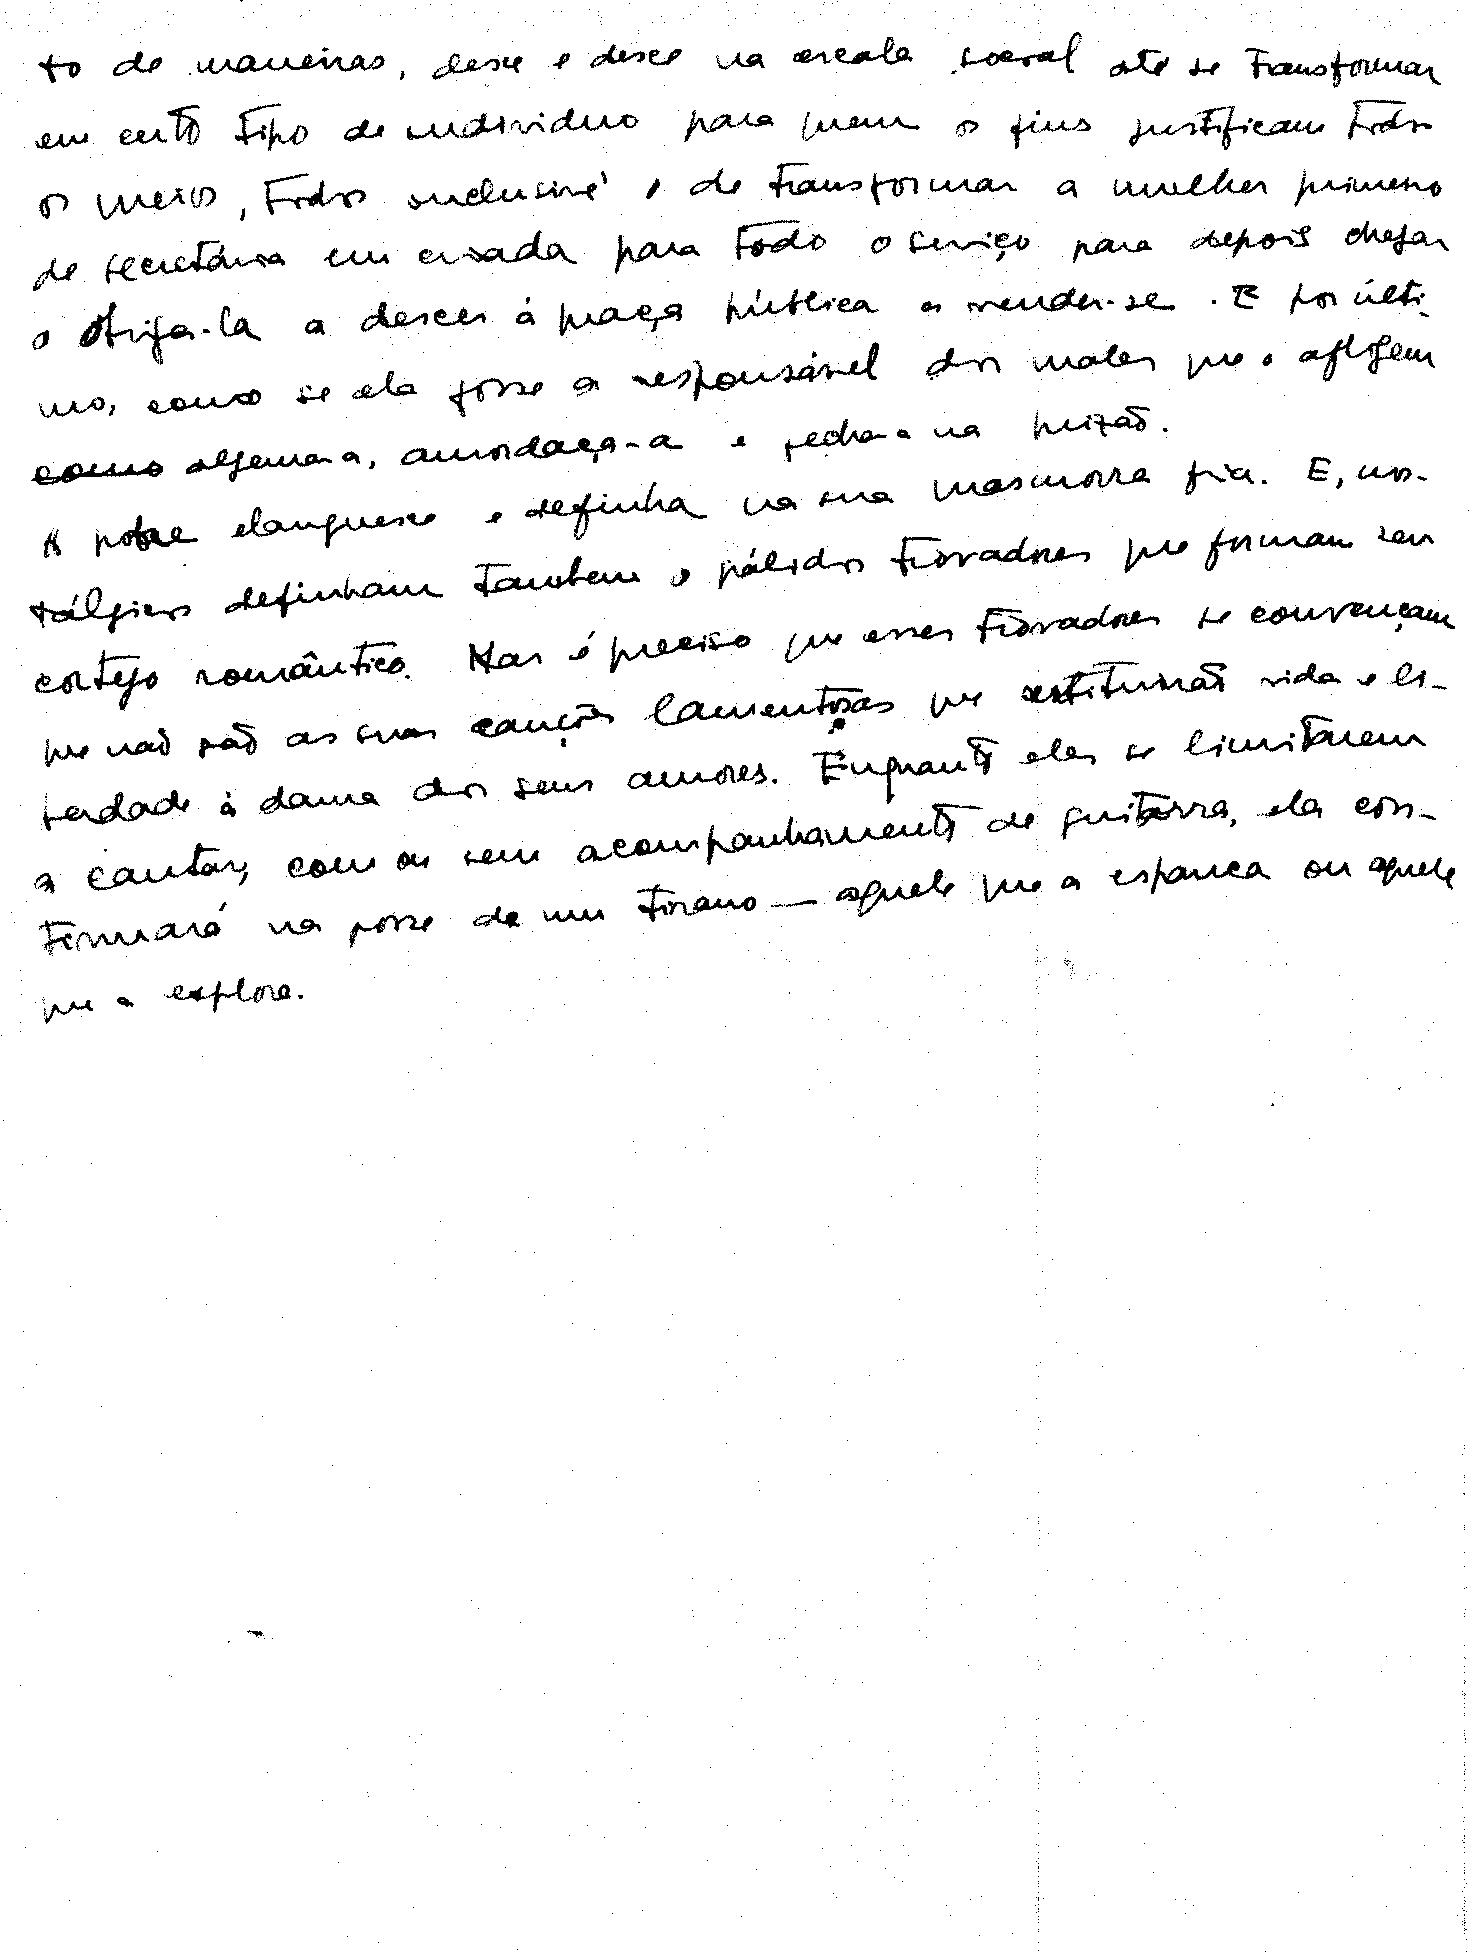 to de maneiras, desce e desce na escala social até se transformar
em certo tipo de individuo para quem os fins justificam todos
os meios, todos inclusivé o de transformar a mulher primeiro
de secretária em criada para todo o serviço para depois chegar
a obriga-la a descer à praça pública a vender-se. E por últi-
mo, como se ela fosse a responsável dos males que o afligem
como algema-a, amordaça-a e fecha-a na prizão.
A pobre elanguesce e definha na sua masmorra fria. E, nos-
tálgicos definham tambem os pálidos trovadores que formam seu
cortejo romântico. Mas é preciso que esses trovadores se convençam
que não são as suas canções lamentosas que restituirão vida e li-
berdade à dama dos seus amores. Enquanto eles se limitarem
a cantar, com ou sem acompanhamento de guitarra, ela con-
tinuará na posse de um tirano — aquele que a espanca ou aquele
que a explora.